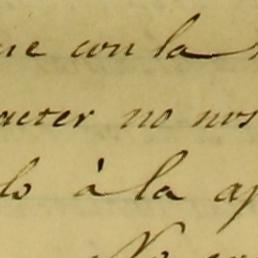 ue con la
acter no nos
lo à la ap